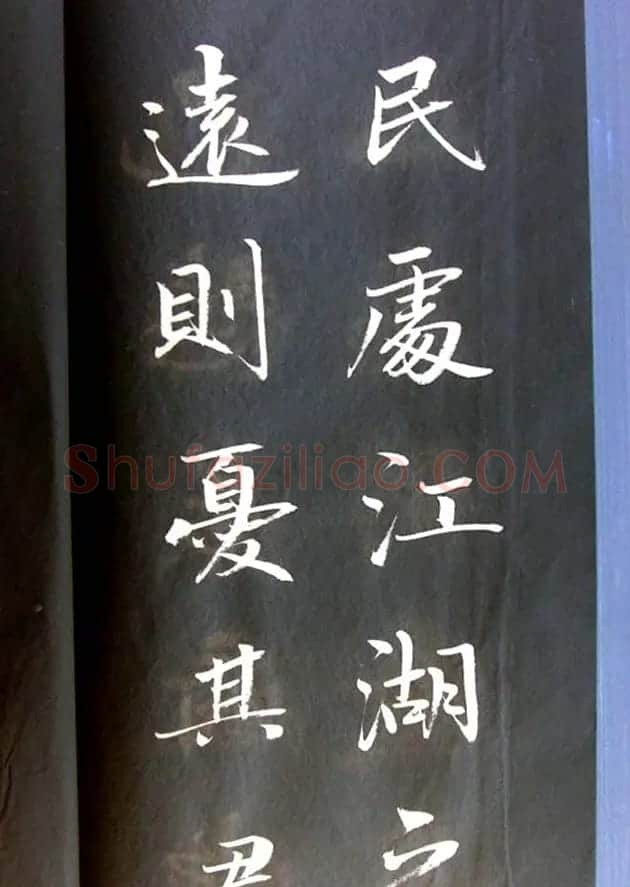 民處江湖之
遠則憂其君
Shufaziliao.COM